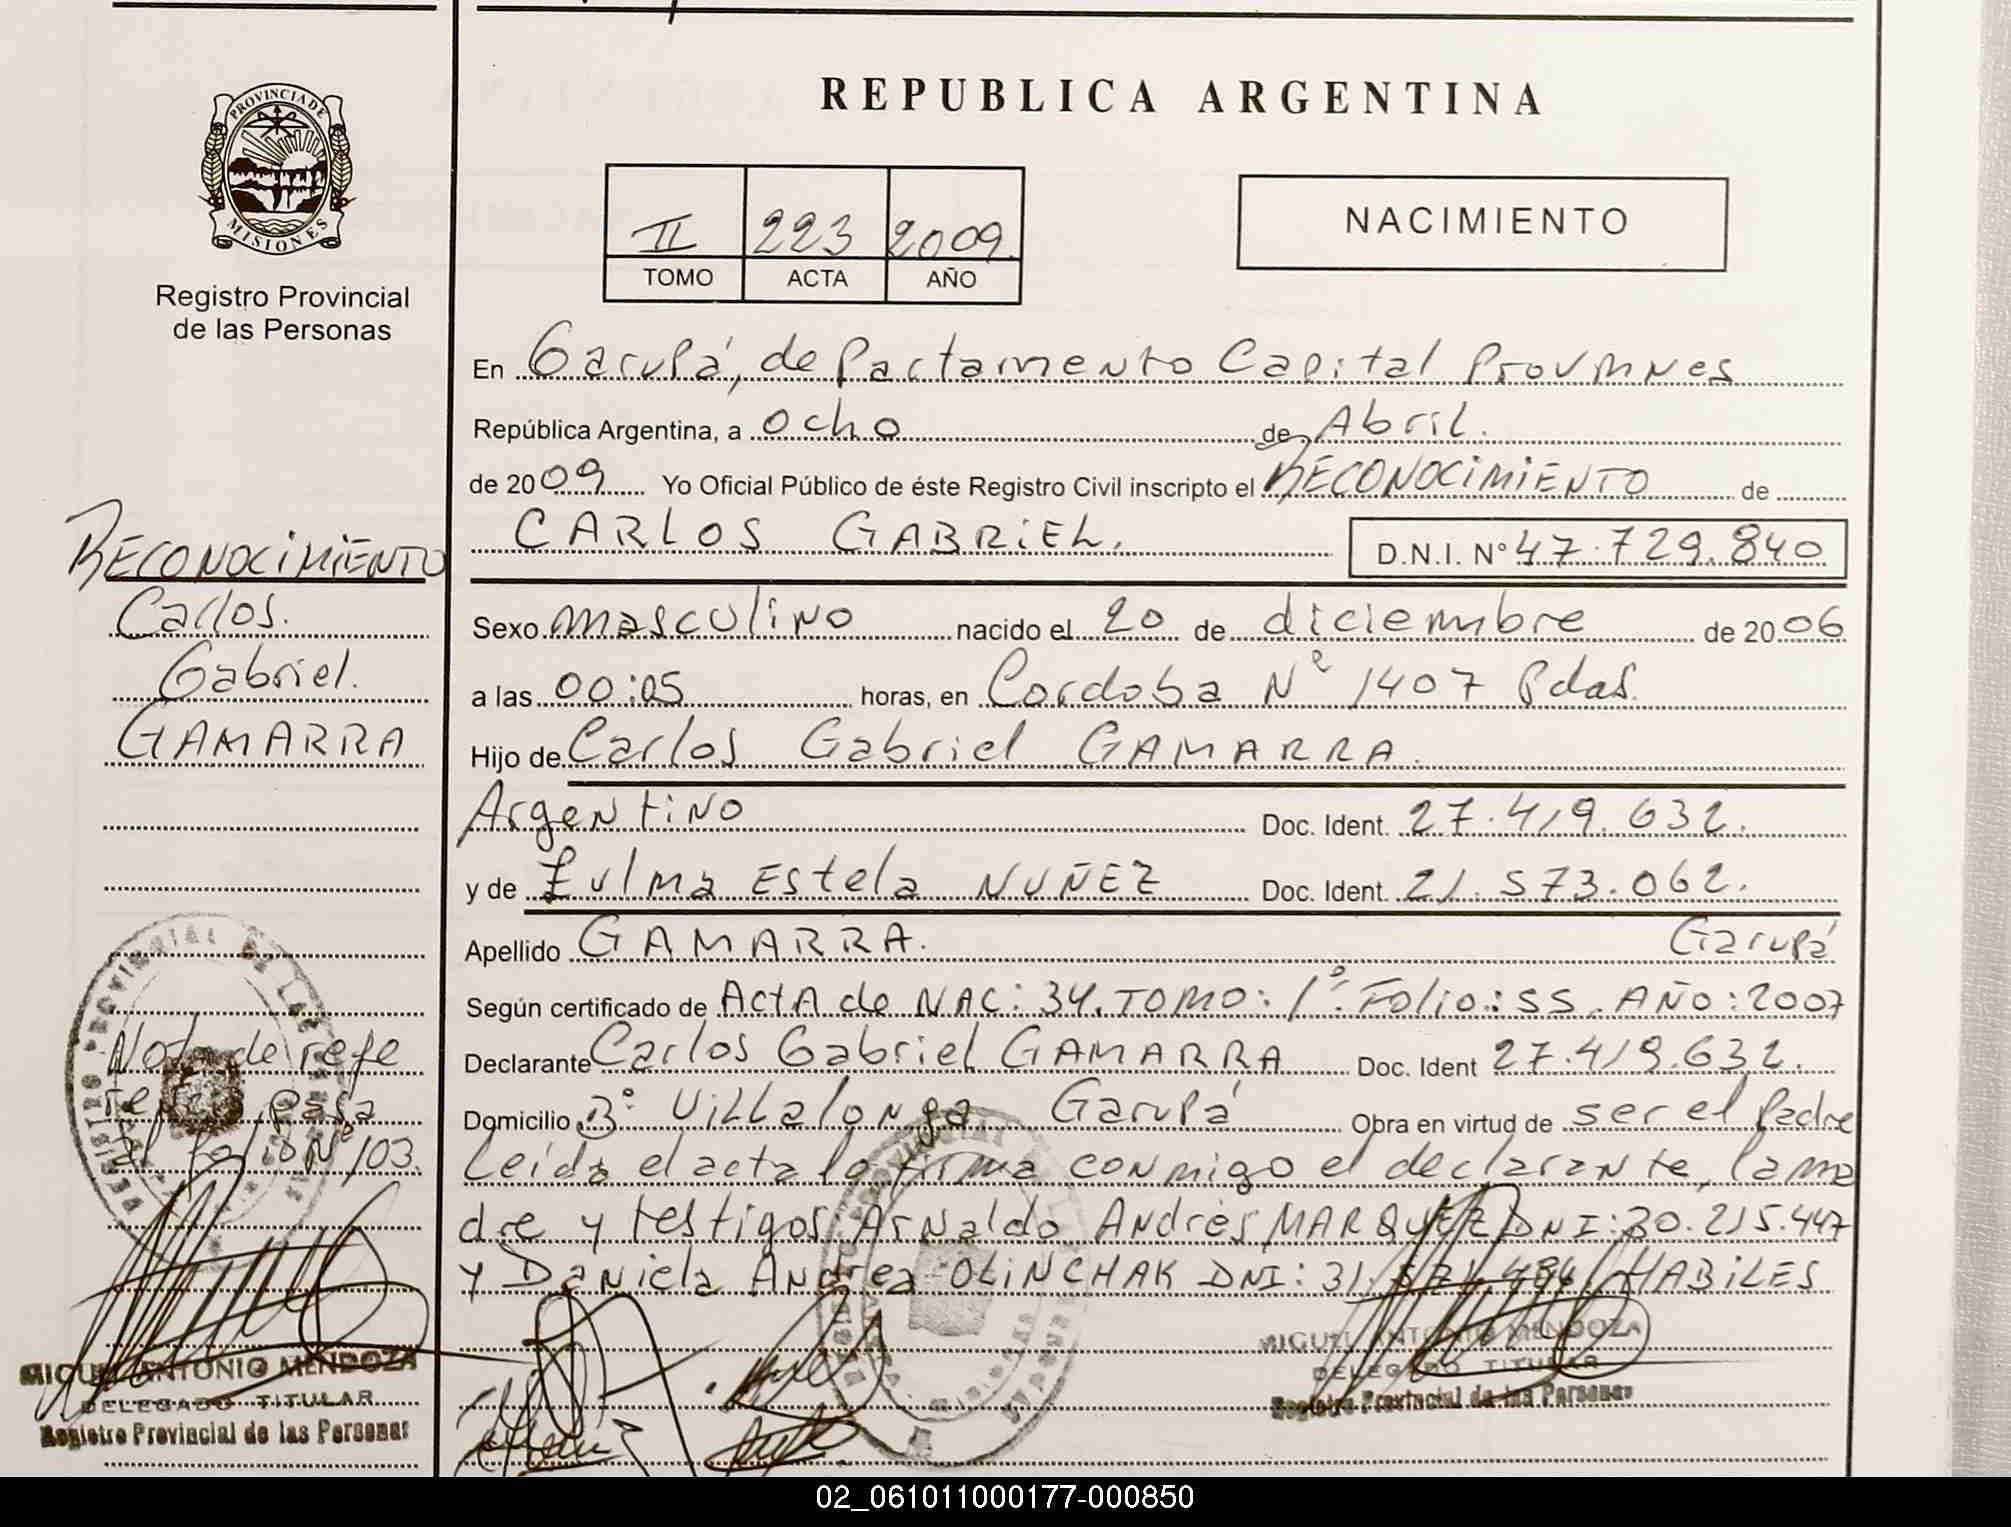 PROVINCIA DE
MISIONES
Registro Provincial
de las Personas
RECONOCIMIENTO
Carlos.
Gabriel.
GAMARRA
Nota de refe
rencia pasa
al folio Nº 103.
MIGUEL ANTONIO MENDOZA
DELEGADO TITULAR
Registro Provincial de las Personas
REPUBLICA ARGENTINA
II 223 2009.
TOMO ACTA AÑO
NACIMIENTO
En Garupá, departamento Capital Prov Mnes
República Argentina, a ocho de Abril.
de 2009 Yo Oficial Público de éste Registro Civil inscripto el RECONOCIMIENTO de
CARLOS GABRIEL. D.N.I. Nº 47.729.840
Sexo masculino nacido el 20 de diciembre de 2006
a las 00:05 horas, en Cordoba Nº 1407 Pdas.
Hijo de Carlos Gabriel GAMARRA.
Argentino Doc. Ident. 27.419.632.
y de Zulma Estela NUÑEZ Doc. Ident. 21.573.062.
Apellido GAMARRA. Garupá
Según certificado de Acta de NAC: 34. TOMO: 1º. Folio: 55. AÑO: 2007
Declarante Carlos Gabriel GAMARRA Doc. Ident 27.419.632.
Domicilio Bº Villalonga Garupá Obra en virtud de ser el padre
Leída el acta la firma conmigo el declarante, la ma
dre y testigos: Arnaldo Andres MARQUEZ DNI: 30.215.447
y Daniela Andrea OLINCHAK DNI: 31. HABILES
MIGUEL ANTONIO MENDOZA
DELEGADO TITULAR
Registro Provincial de las Personas
02_061011000177-000850